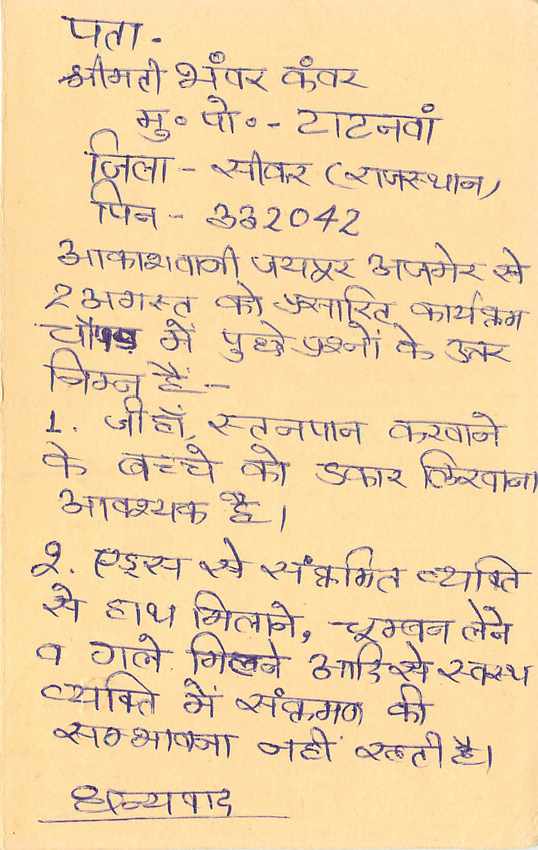 पता -
श्रीमती भंवर कंवर
मु० पो० - टाटनवां
जिला - सीकर (राजस्थान)
पिन - 332042
आकाशवानी जयपुर अजमेर से
2 अगस्त को प्रसारित कार्यक्रम
चौपाल में पुछे प्रश्नों के उत्तर
निम्न हैं -
1. जी हाँ, स्तनपान करवाने
के बच्चे को डकार लिरवाना
आवश्यक है।
2. एड्स से संक्रमित व्यक्ति
से हाथ मिलाने, चूम्बन लेने
व गले मिलने आदि से स्वस्थ
व्यक्ति में संक्रमण की
सम्भावना नहीं रहती है।
धन्यवाद